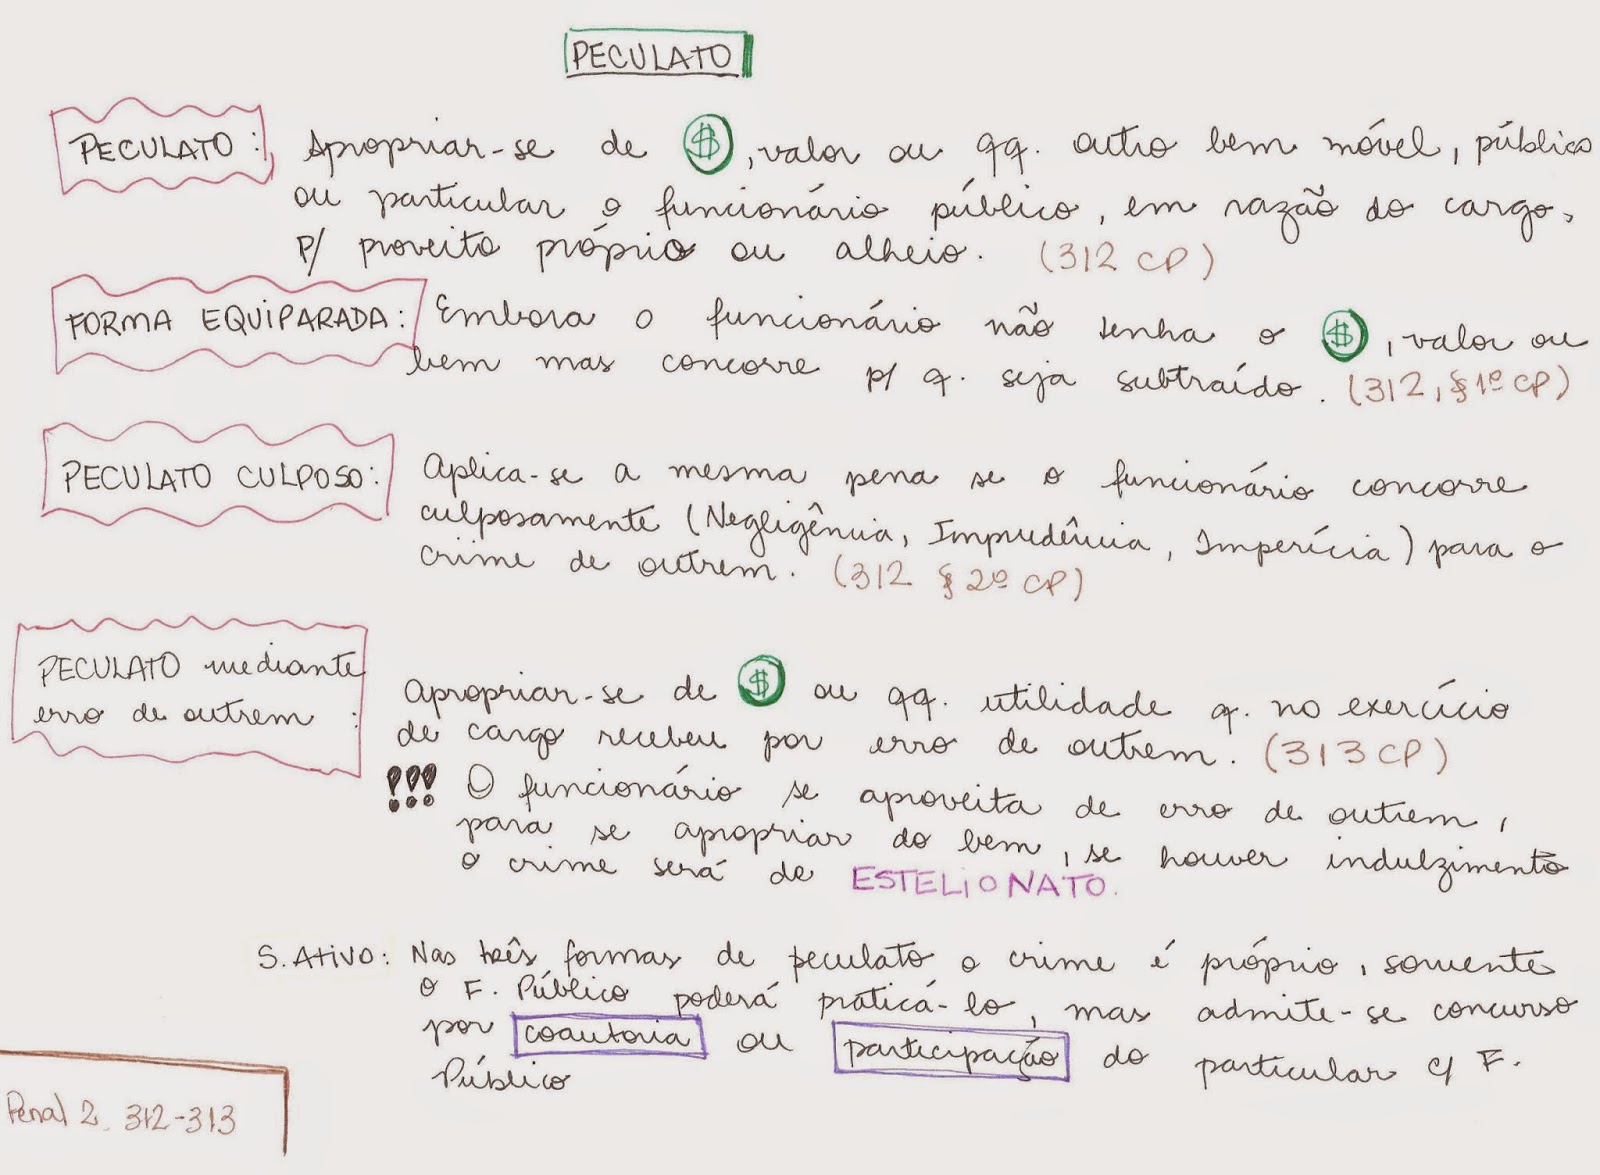 PECULATO
PECULATO: Apropriar-se de $, valor ou qq. outro bem móvel, público
ou particular o funcionário público, em razão do cargo,
p/ proveito próprio ou alheio. (312 CP)
FORMA EQUIPARADA: Embora o funcionário não tenha o $, valor ou
bem mas concorre p/ q. seja subtraído. (312, § 1º CP)
PECULATO CULPOSO: Aplica-se a mesma pena se o funcionário concorre
culposamente (Negligência, Imprudência, Imperícia) para o
crime de outrem. (312 § 2º CP)
PECULATO mediante
erro de outrem :
Apropriar-se de $ ou qq. utilidade q. no exercício
de cargo recebeu por erro de outrem. (313 CP)
!!! O funcionário se aproveita de erro de outrem,
para se apropriar do bem, se houver indulzimento
o crime será de ESTELIONATO.
S. Ativo: Nas três formas de peculato o crime é próprio, somente
o F. Público poderá praticá-lo, mas admite-se concurso
por coautoria ou participação do particular c/ F.
Público
Penal 2. 312-313